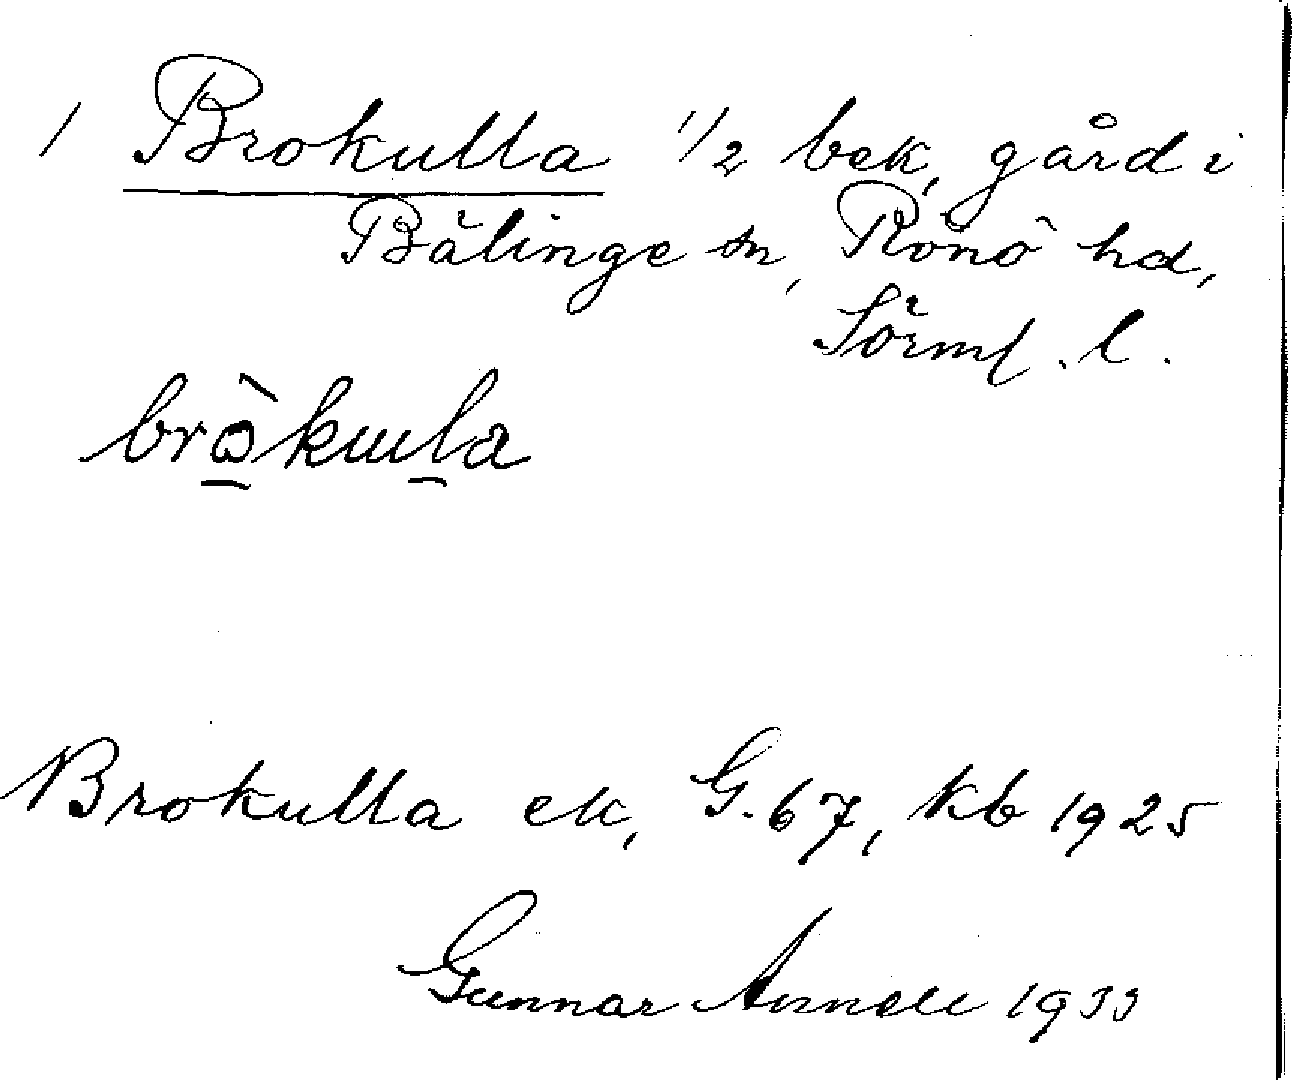 / Brokulla 1/2 bek, gård i
Bälinge sn, Rönö hd,
Sörml. l.
brò̱kuḻa
Brokulla ek, G.67, Kb 1925
Gunnar Arnell 1933